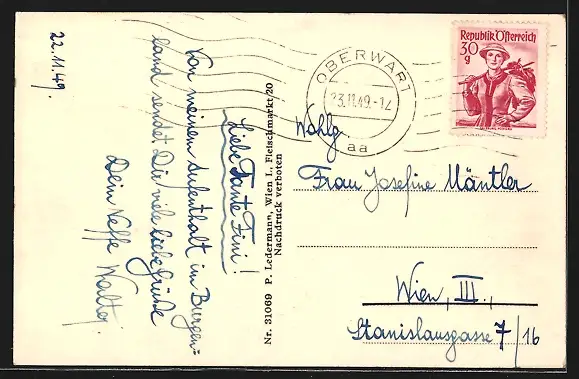 22.11.49.
Liebe Tante Fini!
Von meinem Aufenthalt im Burgen=
land sendet Dir viele liebe Grüße
Dein Neffe Walter.
Nr. 31069 P. Ledermann, Wien I., Fleischmarkt 20
Nachdruck verboten
OBERWART
23.11.49.-12
aa
Republik Österreich
30
g
Wohlg
Frau Josefine Mäntler
Wien, III.,
Stanislausgasse 7/16